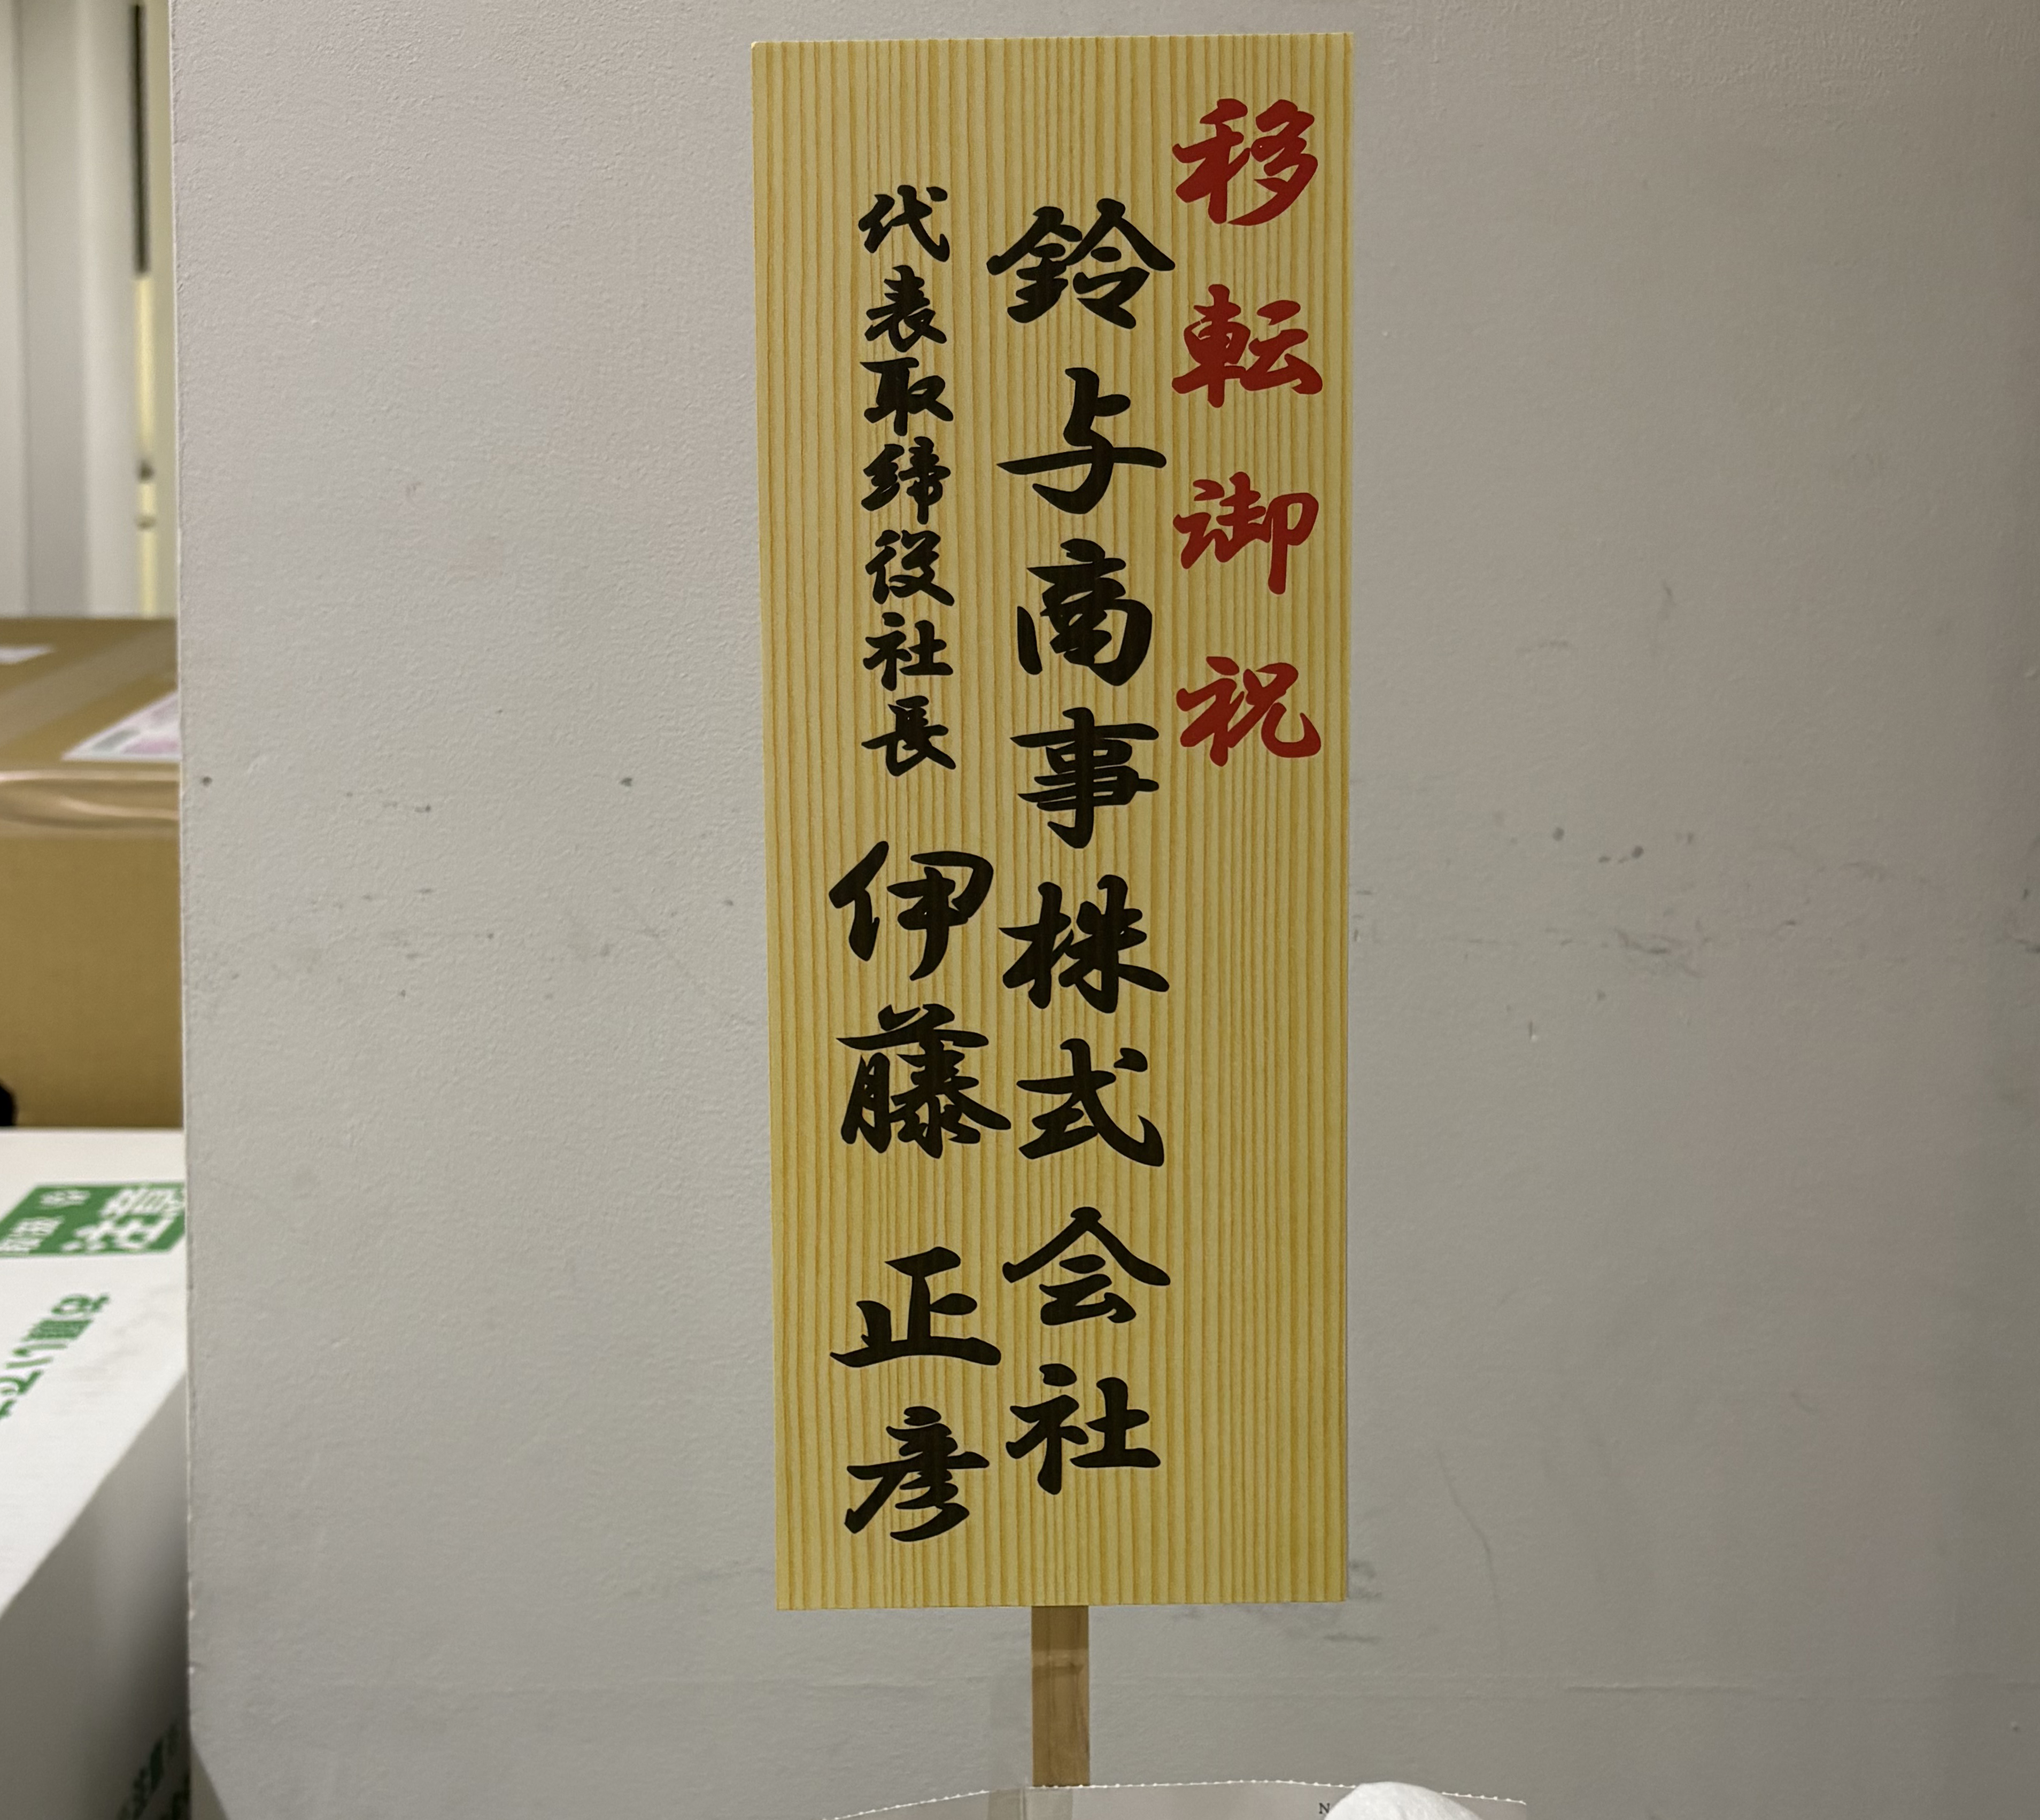 移転御祝
鈴与商事株式会社
代表取締役社長 伊藤正彦